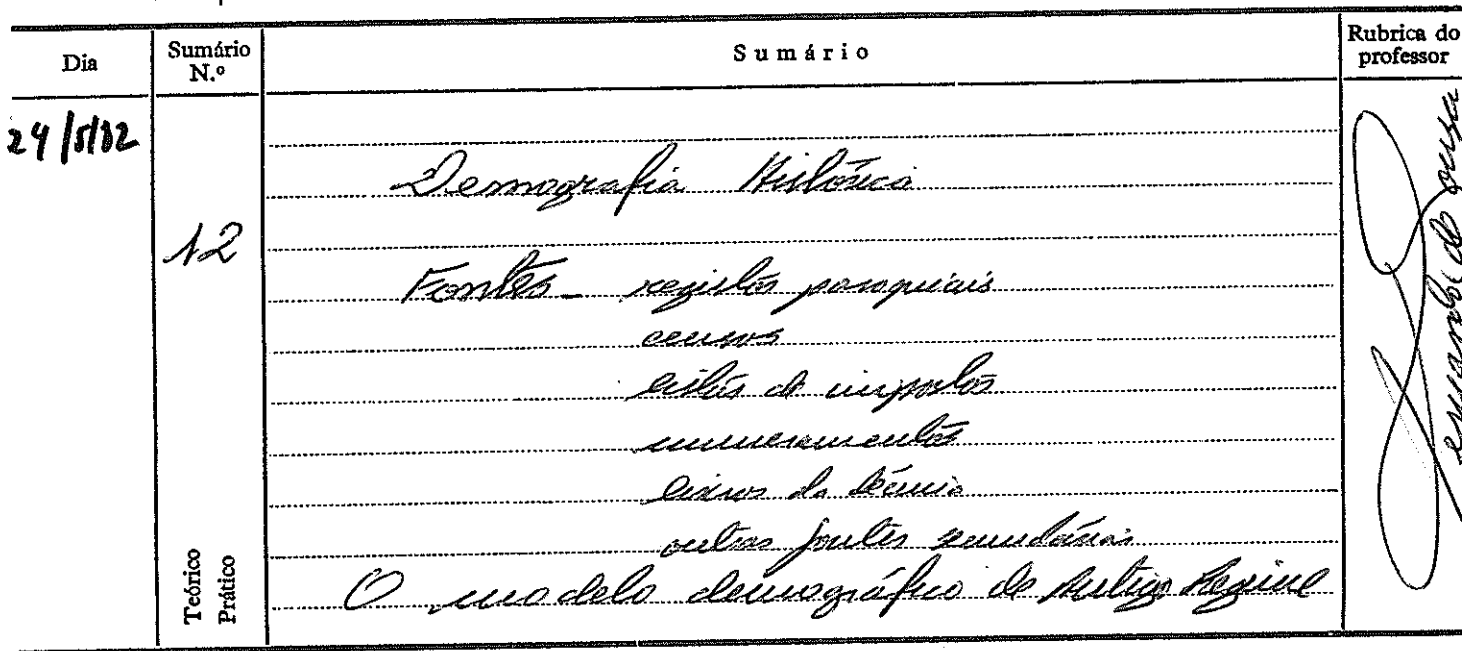 Dia
Sumário
N.º
Sumário
Rubrica do
professor
24/5/82
12
Demografia Histórica
Fontes - registos paroquiais
censos
listas de impostos
numeramentos
livros da décima
outras fontes secundárias
O modelo demográfico de Antigo Regime
Teórico
Prático
Fernando de Sousa